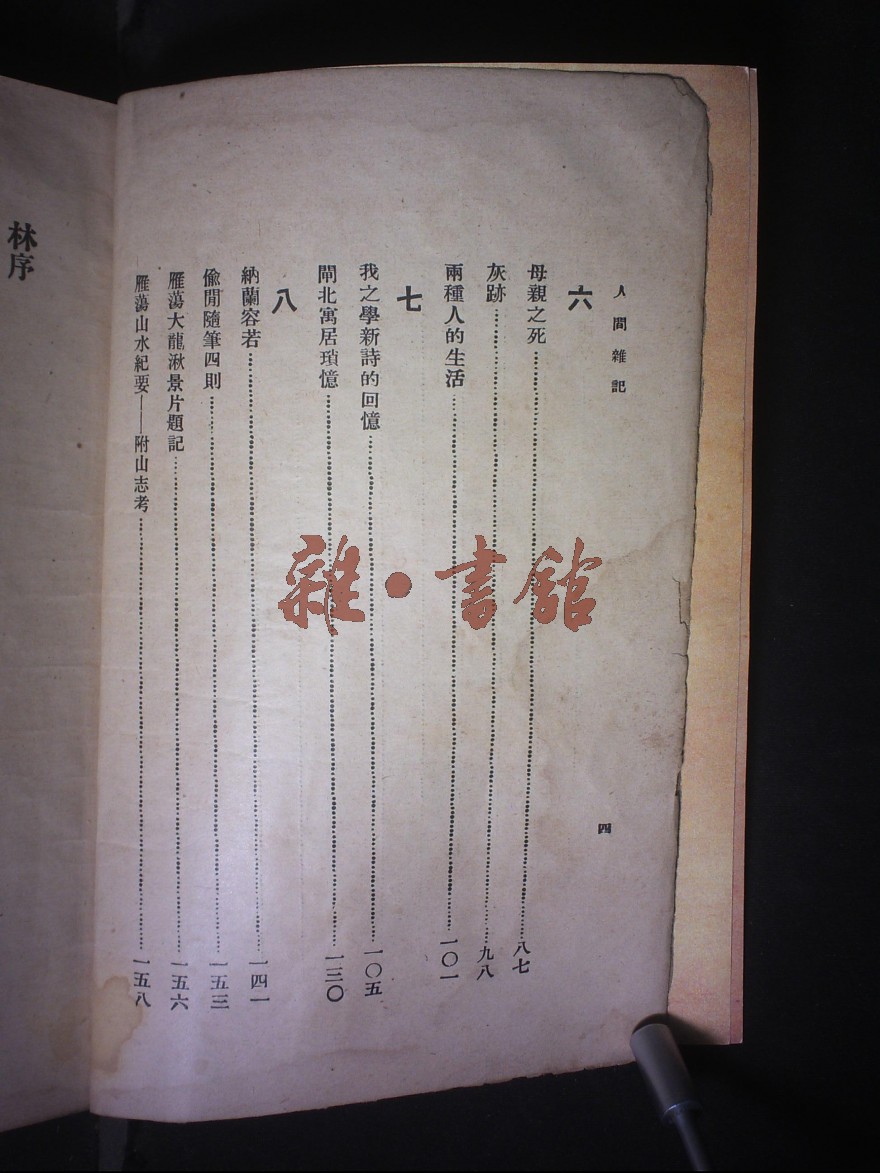 人間雜記
四
六
母親之死……八七
灰跡……九八
兩種人的生活……一〇一
七
我之學新詩的回憶……一〇五
閘北寓居瑣憶……一三〇
八
納蘭容若……一四一
偷閒隨筆四則……一五三
雁蕩大龍湫景片題記……一五六
雁蕩山水紀要——附山志考……一五八
林序
雜·書館